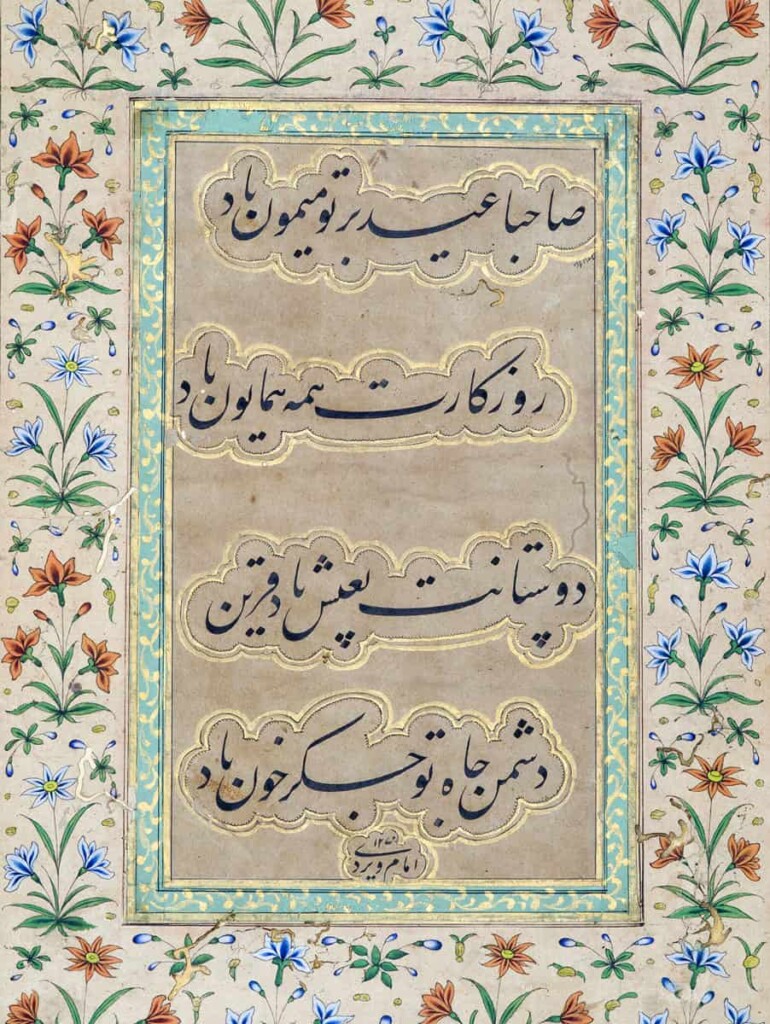 صاحبا عید بر تو میمون باد
روزکارت همه همایون باد
دوستانت بعیش باد قرین
دشمن جاه تو جکر خون باد
امام ویردی
۱۲۷۰